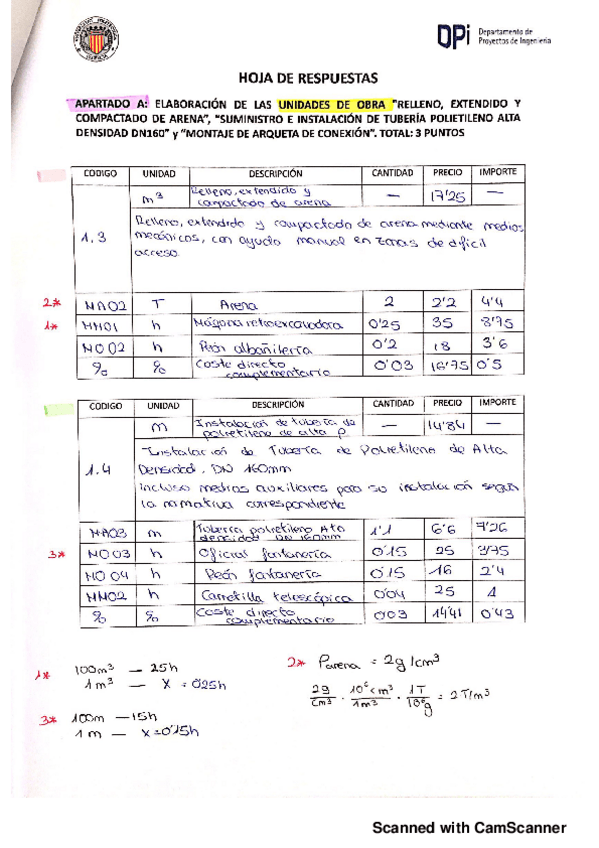 DPi Departamento de
Proyectos de Ingeniería
HOJA DE RESPUESTAS
APARTADO A: ELABORACIÓN DE LAS UNIDADES DE OBRA "RELLENO, EXTENDIDO Y
COMPACTADO DE ARENA", "SUMINISTRO E INSTALACIÓN DE TUBERÍA POLIETILENO ALTA
DENSIDAD DN160" y "MONTAJE DE ARQUETA DE CONEXIÓN". TOTAL: 3 PUNTOS
CODIGO UNIDAD DESCRIPCIÓN CANTIDAD PRECIO IMPORTE
m³ Relleno, extendido y — 17'25 —
compactado de arena
Relleno, extendido y compactado de arena mediante medios
1.3 mecánicos, con ayuda manual en zonas de dificil
acceso
2* MA02 T Arena 2 2'2 4'4
1* MH01 h Máquina retroexcavadora 0'25 35 8'75
MO02 h Peón albañilería 0'2 18 3'6
% % Coste directo 0'03 16'75 0'5
complementario
CODIGO UNIDAD DESCRIPCIÓN CANTIDAD PRECIO IMPORTE
m Instalación de tubería de — 14'84 —
polietileno de alta ρ
Instalación de Tubería de Polietileno de Alta
Densidad. DN 160mm
1.4 Incluso medios auxiliares para su instalación según
la normativa correspondiente
MA03 m Tubería polietileno Alta 1'1 6'6 7'26
densidad DN 160mm
3* MO03 h Oficial fontanería 0'15 25 3'75
MO04 h Peón fontanería 0'15 16 2'4
MH02 h Carretilla telescópica 0'04 25 1
% % Coste directo 0'03 14'41 0'43
complementario
1* 100m³ — 25h
1m³ — x = 0'25h
2* ρarena = 2g/cm³
2g/cm³ · 10⁶cm³/1m³ · 1T/10⁶g = 2T/m³
3* 100m — 15h
1m — x=0'15h
Scanned with CamScanner